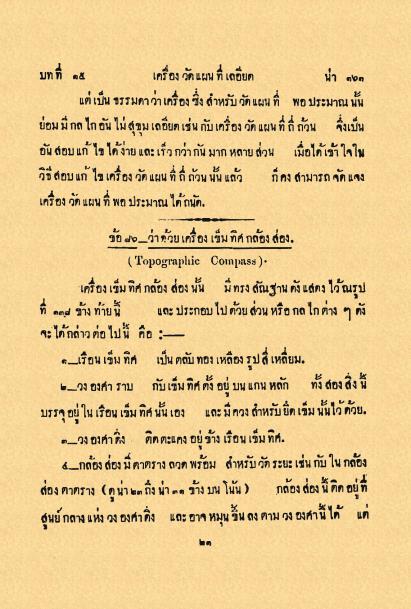 บทที่ ๑๕ เครื่อง วัด แผน ที่ เลอียด น่า ๑๖๑
แต่ เป็น ธรรมดา ว่า เครื่อง ซึ่ง สำหรับ วัด แผน ที่ พอ ประมาณ นั้น
ย่อม มี กล ไก อัน ไม่ สุขุม เลอียด เช่น กับ เครื่อง วัด แผน ที่ ถี่ ถ้วน จึ่ง เป็น
อัน สอบ แก้ ไข ได้ ง่าย และ เร็ว กว่า กัน มาก หลาย ส่วน เมื่อ ได้ เข้า ใจ ใน
วิธี สอบ แก้ ไข เครื่อง วัด แผน ที่ ถี่ ถ้วน นั้น แล้ว ก็ คง สามารถ จัด แจง
เครื่อง วัด แผน ที่ พอ ประมาณ ได้ ถนัด.
ข้อ ๘๐_ว่า ด้วย เครื่อง เข็ม ทิศ กล้อง ส่อง.
(Topographic Compass).
เครื่อง เข็ม ทิศ กล้อง ส่อง นั้น มี ทรง สัณฐาน ดัง แสดง ไว้ ณรูป
ที่ ๑๑๘ ข้าง ท้าย นี้ และ ประกอบ ไป ด้วย ส่วน หรือ กล ไก ต่าง ๆ ดัง
จะ ได้ กล่าว ต่อ ไป นี้ คือ :—
๑_เรือน เข็ม ทิศ เป็น ตลับ ทอง เหลือง รูป สี่ เหลี่ยม.
๒_วง องศา ราบ กับ เข็ม ทิศ ตั้ง อยู่ บน แกน หลัก ทั้ง สอง สิ่ง นี้
บรรจุ อยู่ ใน เรือน เข็ม ทิศ นั้น เอง และ มี ควง สำหรับ ยึด เข็ม นั้น ไว้ ด้วย.
๓_วง องศา ดิ่ง ติด ตะแคง อยู่ ข้าง เรือน เข็ม ทิศ.
๔_กล้อง ส่อง มี ตาตราง ลวด พร้อม สำหรับ วัด ระยะ เช่น กับ ใน กล้อง
ส่อง ตาตราง (ดู น่า ๒๓ ถึง น่า ๓๑ ข้าง บน โน้น) กล้อง ส่อง นี้ ติด อยู่ ที่
ศูนย์ กลาง แห่ง วง องศา ดิ่ง และ อาจ หมุน ขึ้น ลง ตาม วง องศา นี้ ได้ แต่
๒๑